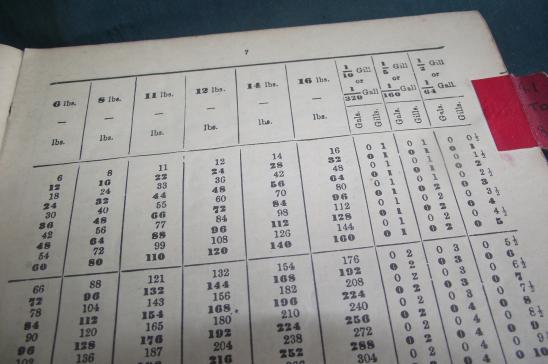 7
6 lbs. 8 lbs. 11 lbs. 12 lbs. 14 lbs. 16 lbs. 1/10 Gill or 1/320 Gall 1/5 Gill or 1/160 Gall 1/2 Gill or 1/64 Gall.
— — — — — —
lbs. lbs. lbs. lbs. lbs. lbs. Galls. Gills. Galls. Gills. Galls. Gills.
6 8 11 12 14 16 0 1 0 1 0 0½
12 16 22 24 28 32 0 1 0 1 0 1
18 24 33 36 42 48 0 1 0 1 0 1½
24 32 44 48 56 64 0 1 0 1 0 2
30 40 55 60 70 80 0 1 0 1 0 2½
36 48 66 72 84 96 0 1 0 2 0 3
42 56 77 84 98 112 0 1 0 2 0 3½
48 64 88 96 112 128 0 1 0 2 0 4
54 72 99 108 126 144 0 1 0 2 0 4½
60 80 110 120 140 160 0 1 0 2 0 5
66 88 121 132 154 176 0 2 0 3 0 5½
72 96 132 144 168 192 0 2 0 3 0 6
78 104 143 156 182 208 0 2 0 3 0 6½
84 112 154 168 196 224 0 2 0 3 0 7
90 120 165 180 210 240 0 2 0 3 0 7½
96 128 176 192 224 256 0 2 0 4 0 8
102 136 187 204 238 272
216 252 288
304